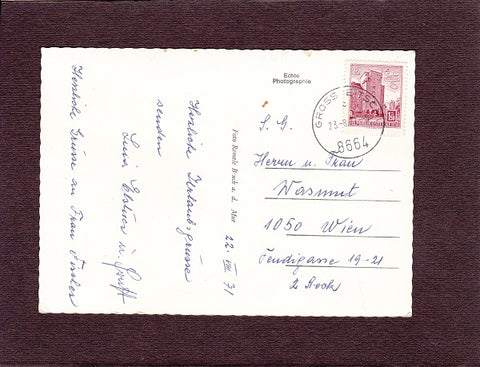 Echte
Photographie
GROSS
23.-8.
8664
Herzliche Urlaubsgrüsse
senden
Luise u.
Herzliche Grüsse an Frau
22. VIII. 71
Foto Remele Bruck a. d. Mur
S. G.
Herrn u. Frau
Wasmut
1050 Wien
Fendigasse 19-21
2 Stock